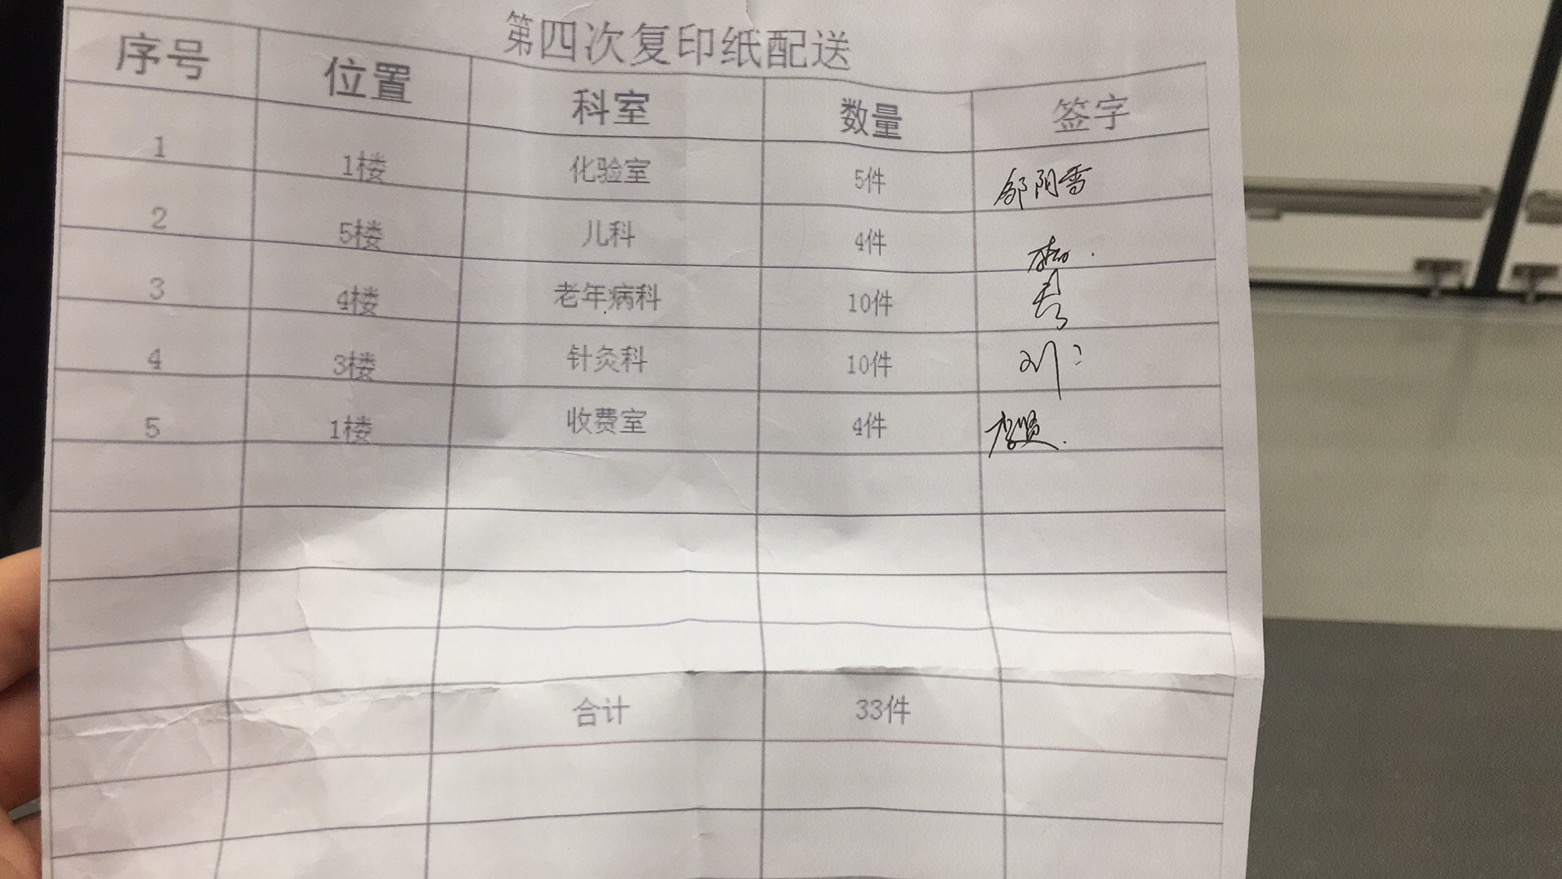 第四次复印纸配送
序号 位置 科室 数量 签字
1 1楼 化验室 5件 邹阳雪
2 5楼 儿科 4件
3 4楼 老年病科 10件
4 3楼 针灸科 10件 刘
5 1楼 收费室 4件
合计 33件